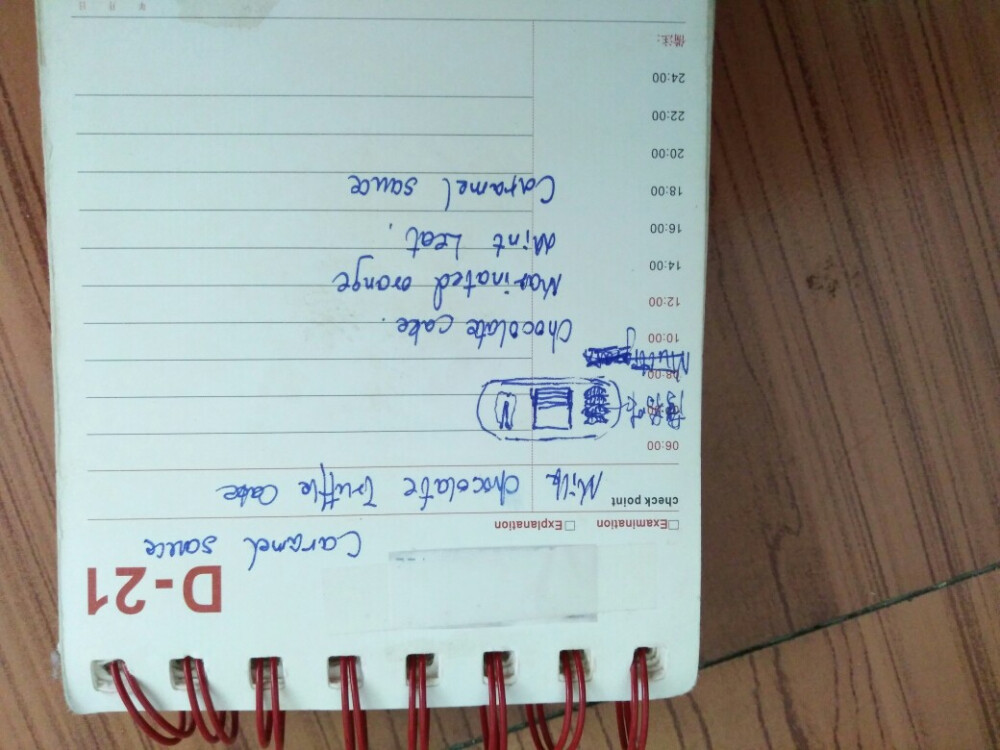 D-21
Caramel sauce
□Examination □Explanation
check point
Milk chocolate Truffle Cake
06:00
08:00
Multi
10:00
Chocolate cake.
12:00
Marinated orange
14:00
Mint Leaf,
16:00
18:00
Caramel sauce
20:00
22:00
24:00
备注:
年 月 日